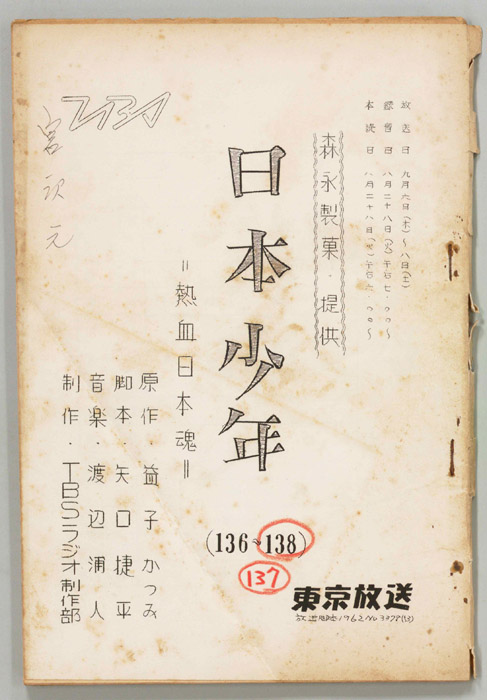 放送日 九月六日(木)〜八日(土)
録音日 八月二十八日(火)午后七・〇〇〜
本読日 八月二十八日(火)午后六・〇〇〜
森永製菓・提供
日本少年
=熱血日本魂=
原作・益子かつみ
脚本・矢口捷平
音楽・渡辺浦人
制作・TBSラジオ制作部
(136〜138)
137
東京放送
1962 No.3378(13)